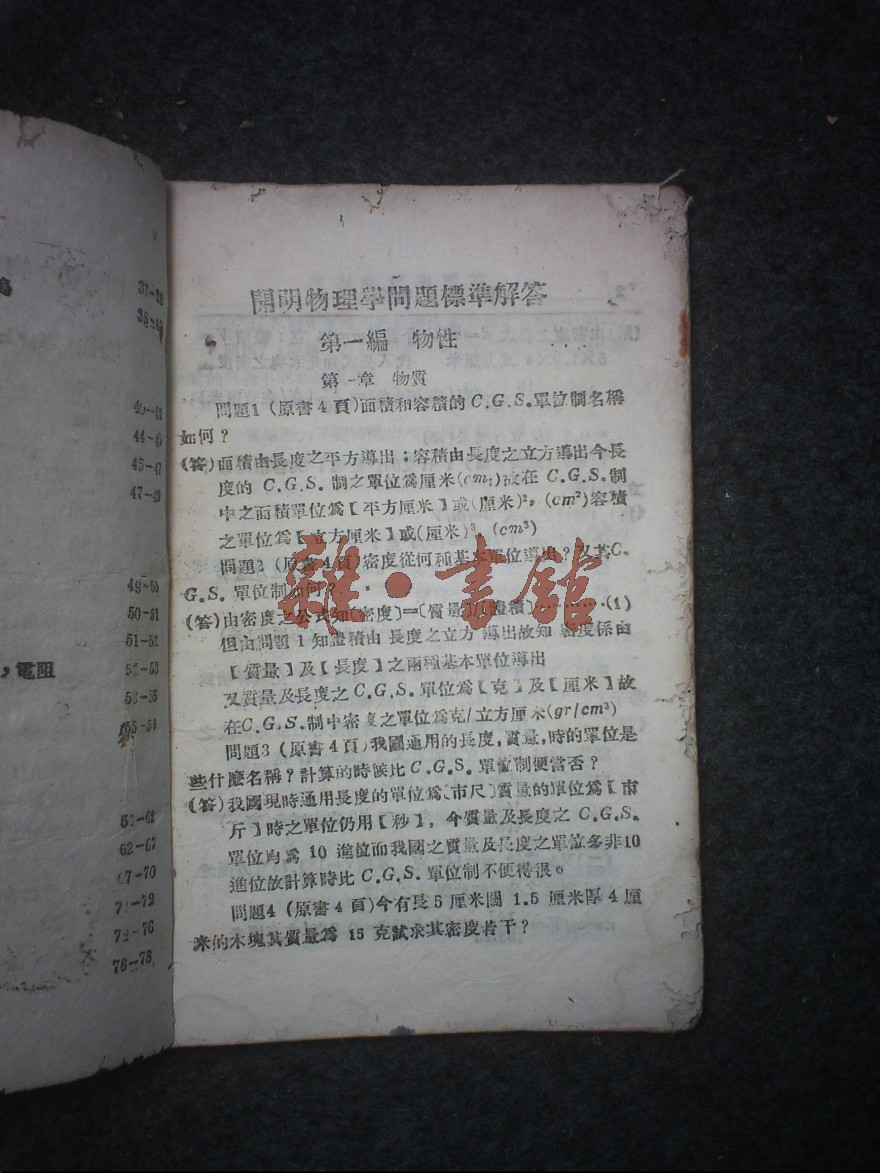 37-38
38-40
40-43
44-45
45-47
47-49
49-50
50-51
51-52
，電阻
52-53
53-55
55-56
62-67
67-70
72-76
76-78
開明物理學問題標準解答
第一編 物性
第一章 物質
問題1 (原書4頁)面積和容積的 C.G.S.單位制名稱
如何？
(答)面積由長度之平方導出；容積由長度之立方導出今長
度的 C.G.S. 制之單位爲厘米(cm₁)故在 C.G.S.制
中之面積單位爲【平方厘米】或(厘米)². (cm²)容積
之單位爲【立方厘米】或(厘米)³ (cm³)
問題2 (原書4頁)密度從何種基本單位導出？又其C.
G.S. 單位制如何？
(答)由密度之公式知〔密度〕=〔質量〕/〔體積〕…………(1)
但由問題 1 知體積由 長度之立方 導出故知 密度係由
【質量】及【長度】之兩種基本單位導出
又質量及長度之 C.G.S. 單位爲【克】及【厘米】故
在C.G.S.制中密度之單位爲克/立方厘米(gr/cm³)
問題3 (原書4頁)我國通用的長度,質量,時的單位是
些什麽名稱？計算的時候比 C.G.S. 單位制便當否？
(答)我國現時通用長度的單位爲〔市尺〕質量的單位爲【市
斤】時之單位仍用【秒】, 今質量及長度之 C.G.S.
單位均爲 10 進位而我國之質量及長度之單位多非10
進位故計算時比 C.G.S. 單位制不便得很。
問題4 (原書4頁)今有長 5 厘米闊 1.5 厘米厚 4 厘
米的木塊其質量爲 15 克試求其密度若干？
雜·書館